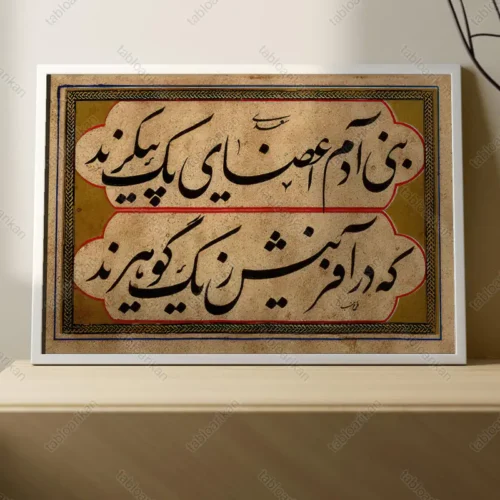 سعدی
بنی آدم اعضای یک پیکرند
که در آفرینش ز یک گوهرند